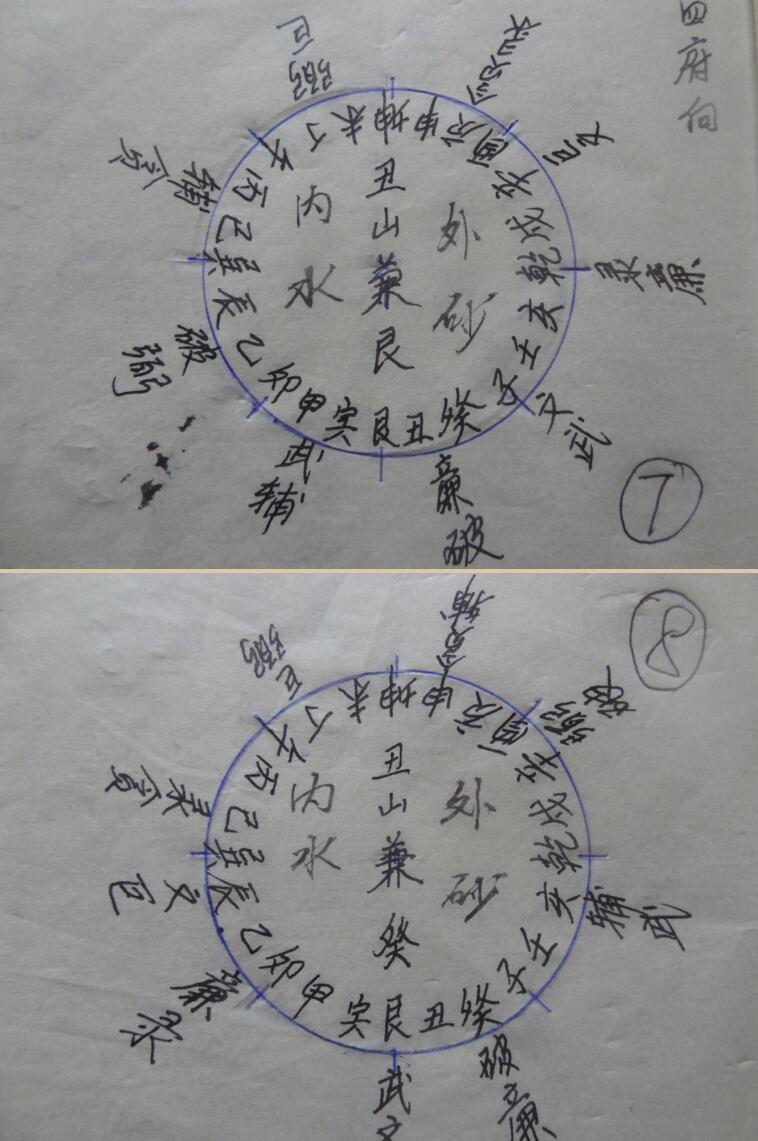 四府向
丑山兼艮
内水
外砂
坤申庚酉辛戌乾亥壬子癸丑艮寅甲卯乙辰巽巳丙午丁未
弼
巨
文
巨
禄
廉
文
武
廉
破
武
辅
破
弼
辅
贪
7
8
丑山兼癸
内水
外砂
坤申庚酉辛戌乾亥壬子癸丑艮寅甲卯乙辰巽巳丙午丁未
巨
弼
贪
辅
弼
破
辅
武
破
廉
武
文
廉
禄
文
巨
禄
贪